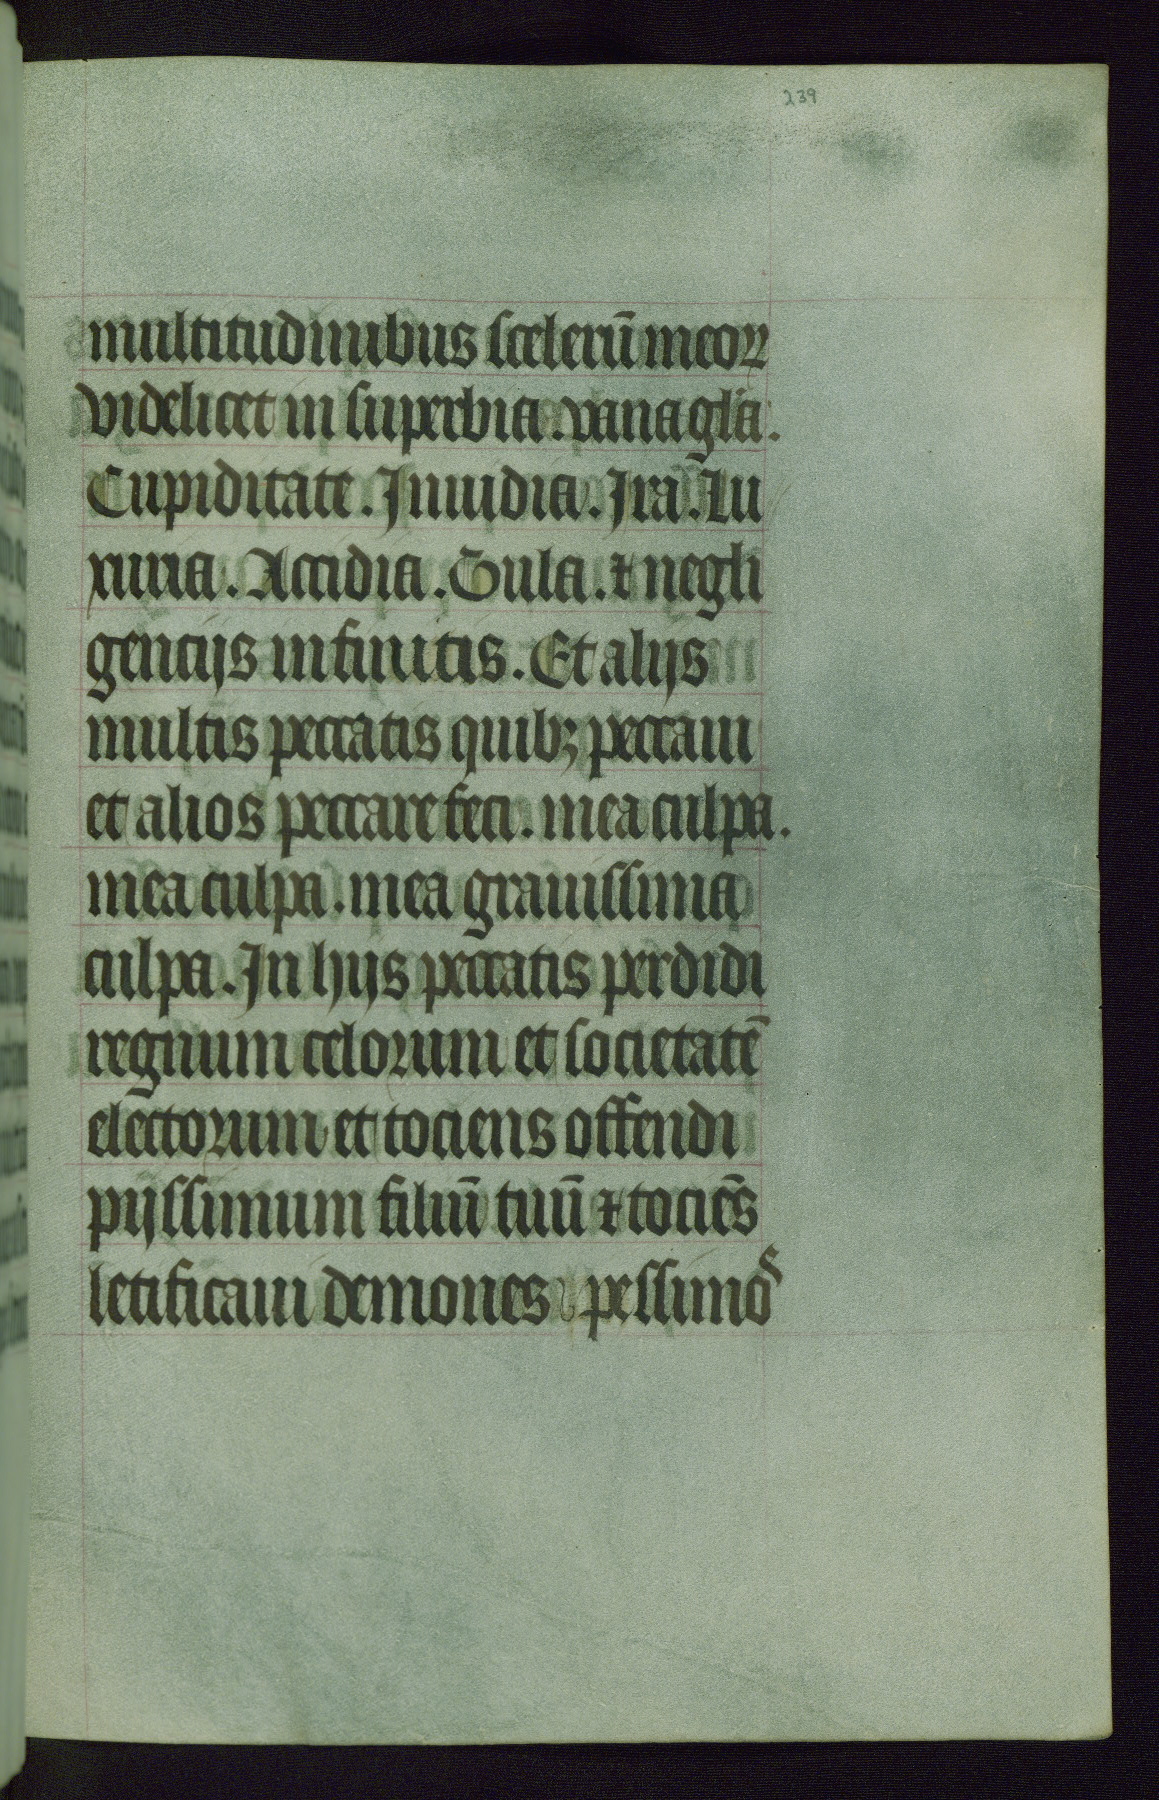 239
multitudinibus scelerū meoꝝ
videlicet in superbia. vana gl̄a.
Cupiditate. Inuidia. Ira. Lu
xuria. Accidia. Gula. ⁊ negli
gencijs infinitis. Et alijs
multis peccatis quibꝫ peccaui
et alios peccare feci. mea culpa.
mea culpa. mea grauissima
culpa. In hijs peccatis perdidi
regnum celorum et societatē
electorum et tociens offendi
pijssimum filiū tuū ⁊ tociēs
letificaui demones pessimoˢ